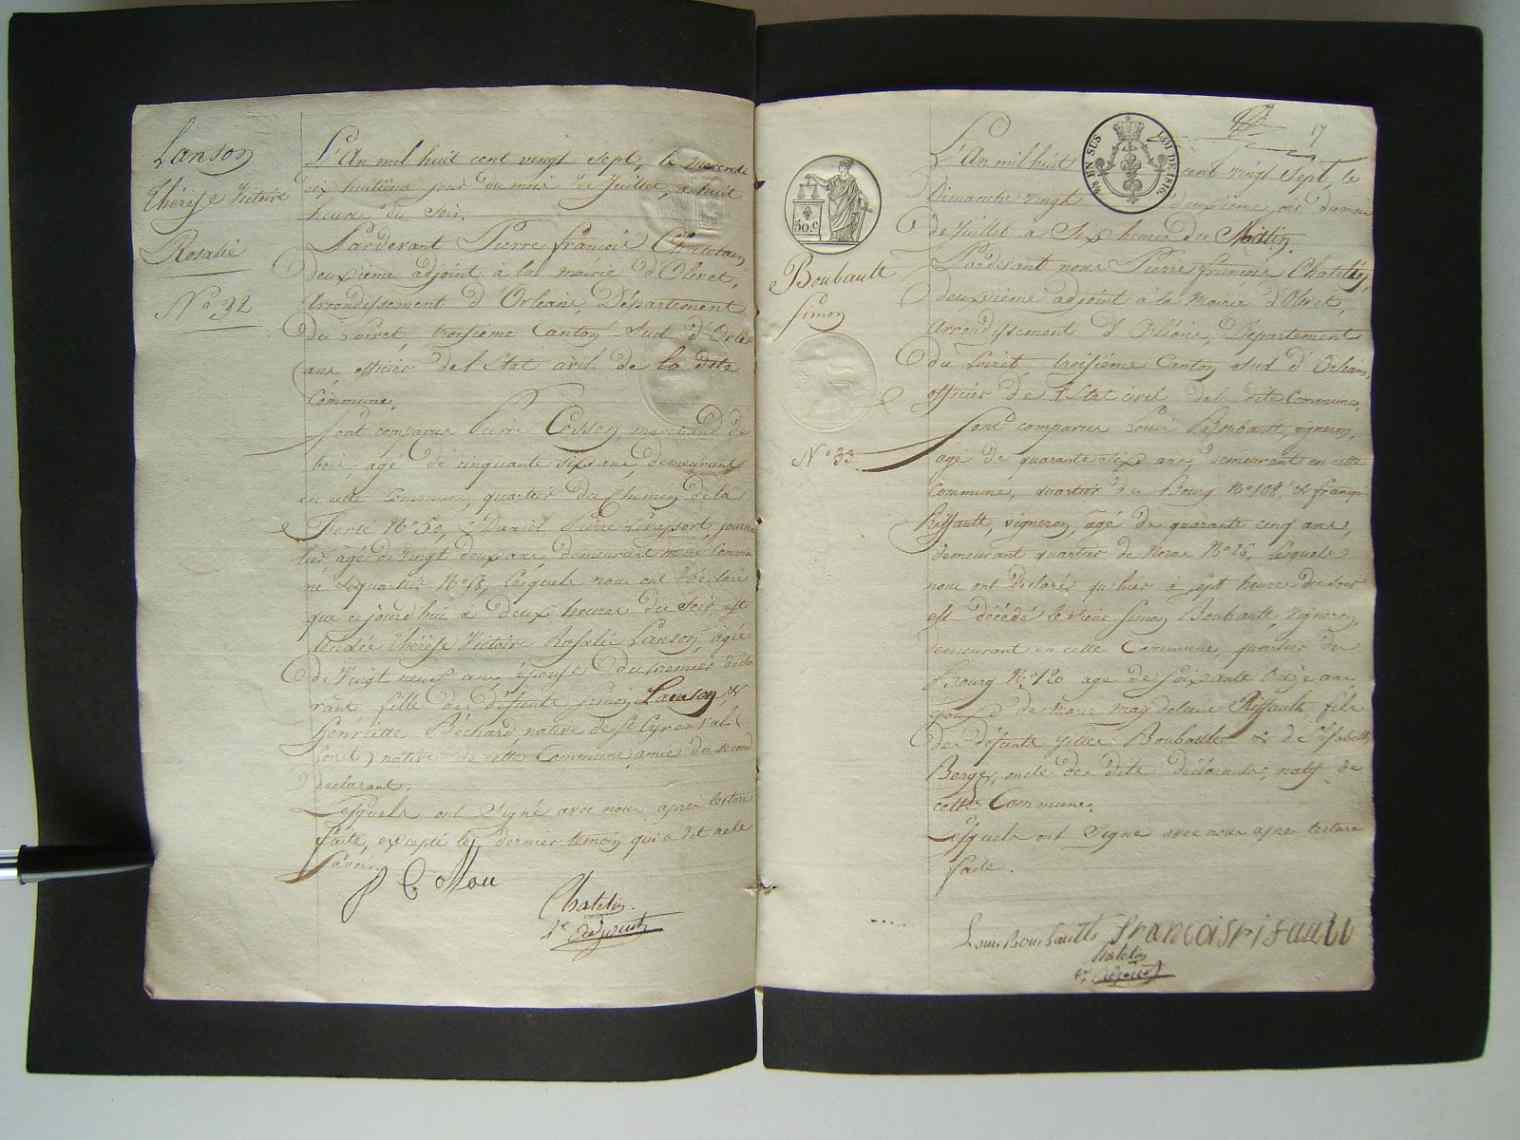 Lanson
Thérèse Victoire
Rosalie
N° 32
L'An mil huit cent vingt sept, le mercredi
dix huitième jour du mois de Juillet, à huit
heure du soir.
Pardevant Pierre françois Chatelain
deuxième adjoint à la mairie d'Olivet,
arrondissement d'Orléans, Département
du Loiret, troisième Canton Sud d'Orlé
ans officier de l'Etat civil de la dite
Commune.
Sont comparus Pierre Cosson, marchand de
bois, agé de cinquante six ans, demeurant
en cette Commune, quartier du chemin de la
Ferté N° 50, & Daniel Pierre journa
lier, agé de vingt deux ans, demeurant même Commu
ne & quartier N° 18, lesquels nous ont déclaré
que ce jourd'hui à deux heures du soir est
décédée Thérèse Victoire Rosalie Lanson, agée
de Vingt neuf ans, épouse du premier décla
rant fille de défunts Lanson, &
Henriette Béchard native de St Cyr en Val
native de cette Commune, amie du second
déclarant.
Lesquels ont Signé avec nous après lecture
faite, excepté le dernier temoin qui a dit ne le
Savoir.
Chatelin
2e Adjoint
17
EN SUS
LOI DE 1816
50.c
Boubault
Simon
N° 33
L'An mil huit cent vingt Sept, le
Dimanche vingt deuxième jour du mois
de Juillet à Six heures du Matin.
Pardevant nous Pierre françois Chatelin,
deuxième adjoint à la Mairie d'Olivet,
Arrondissement d'Orléans, Département
du Loiret, troisième Canton Sud d'Orléans,
officier de l'Etat civil de la dite Commune.
Sont comparus Louis Boubault, vigneron,
agé de quarante six ans, demeurant en cette
Commune, quartier du Bourg N° 108, & françois
Riffault, vigneron, agé de quarante cinq ans,
demeurant quartier de N° 26, lesquels
nous ont déclaré qu'hier à sept heures du soir
est décédé le Sieur Simon Boubault, vigneron
demeurant en cette Commune, quartier du
Bourg N° 120 agé de Soixante Onze ans
époux de Marie Magdelaine Riffault, fils
des défunts Boubault & de Elisabeth
Berger, oncle des dits déclarants, natif de
cette Commune.
Lesquels ont Signé avec nous après lecture
faite.
Louis Boubault françois rifault
Chatelin
2e Adjoint